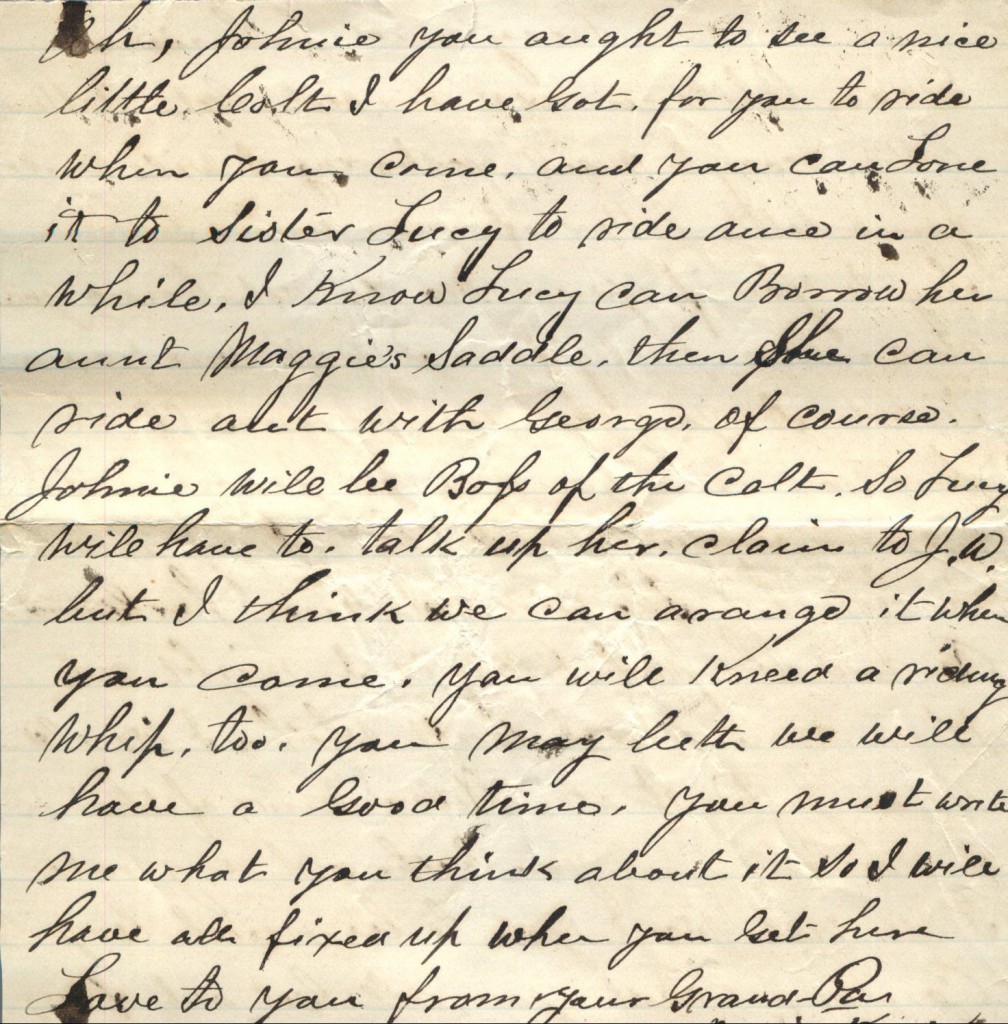 Oh, Johnie you aught to see a nice
little Colt I have Got. for you to ride
when you come. and you can Lone
it to Sister Lucy to ride once in a
while, I Know Lucy can Borrow her
aunt Maggie's Saddle, then She can
ride out with George, of course.
Johnie will be Boss of the Colt. So Lucy
will have to. talk up her. claim to J.W.
but I think we can arange it when
you come. you will Kneed a riding
whip, too. you may beth we will
have a Good time. you must write
me what you think about it So I will
have all fixed up when you Get here
Love to you from your Grand-Pa